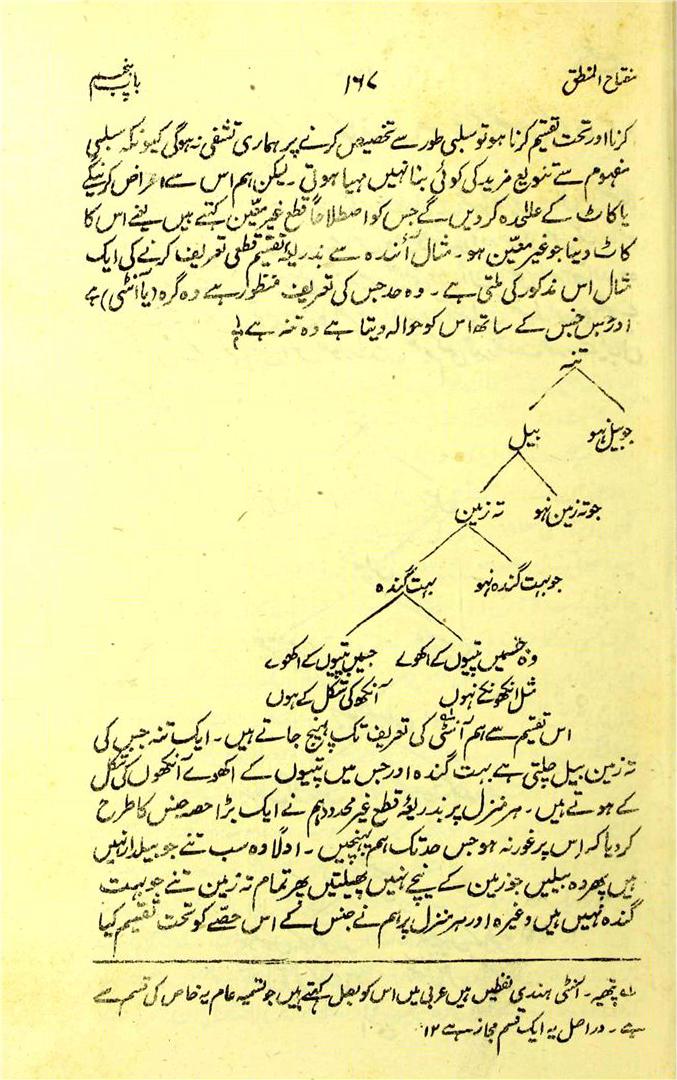 مفتاح المنطق ۱۶۷ باب پنجم
کرنا اور تحت تقسیم کرنا ہو تو سلبی طور سے تخصیص کرنے پر ہماری تشفی نہ ہوگی کیونکہ سلبی
مفہوم سے تنویع مزید کی کوئی بنا نہیں مہیا ہوتی ۔ لیکن ہم اس سے اعراض کرینگے
یا کاٹ کے علٰحدہ کر دیں گے جس کو اصطلاحاً قطع غیر معیّن کہتے ہیں یعنے اس کا
کاٹ دینا جو غیر معیّن ہو ۔ مثال آئندہ سے بذریعۂ تقسیم قطعی تعریف کرنے کی ایک
مثال اس مذکور کی ملتی ہے ۔ وہ حد جس کی تعریف منظور ہے وہ گرہ (یا آنٹی) ہے
اور جس جنس کے ساتھ اس کو حوالہ دیتا ہے وہ تنہ ہے
تنہ
جو بیل نہو بیل
جو تہ زمین نہو تہ زمین
جو بہت گندہ نہو بہت گندہ
وہ جنمیں پتیوں کے اکھوے جسمیں پتیوں کے اکھوے
مثل آنکھونکے نہوں آنکھ کی شکل کے ہوں
اس تقسیم سے ہم آنٹی کی تعریف تک پہنچ جاتے ہیں ۔ ایک تنہ جس کی
تہ زمین بیل چلتی ہے بہت گندہ اور جس میں پتیوں کے اکھوے آنکھوں کی شکل
کے ہوتے ہیں ۔ ہر منزل پر بذریعۂ قطع غیر محدود ہم نے ایک بڑا حصہ جنس کا طرح
کر دیا کہ اس پر غور نہ ہو جس حد تک ہم پہنچیں ۔ اولًا وہ سب تنے جو بیلدار نہیں
ہیں پھر وہ بیلیں جو زمین کے نیچے نہیں پھیلتیں پھر تمام تہ زمین تنے جو بہت
گندہ نہیں ہیں وغیرہ اور ہر منزل پر ہم نے جنس کے اس حصّے کو تحت تقسیم کیا
آنٹی ہندی لفظیں ہیں عربی میں اس کو بصل کہتے ہیں جو تسمیہ عام بہ خاص کی قسم سے
ہے ۔ در اصل یہ ایک قسم مجاز ہے ۱۲